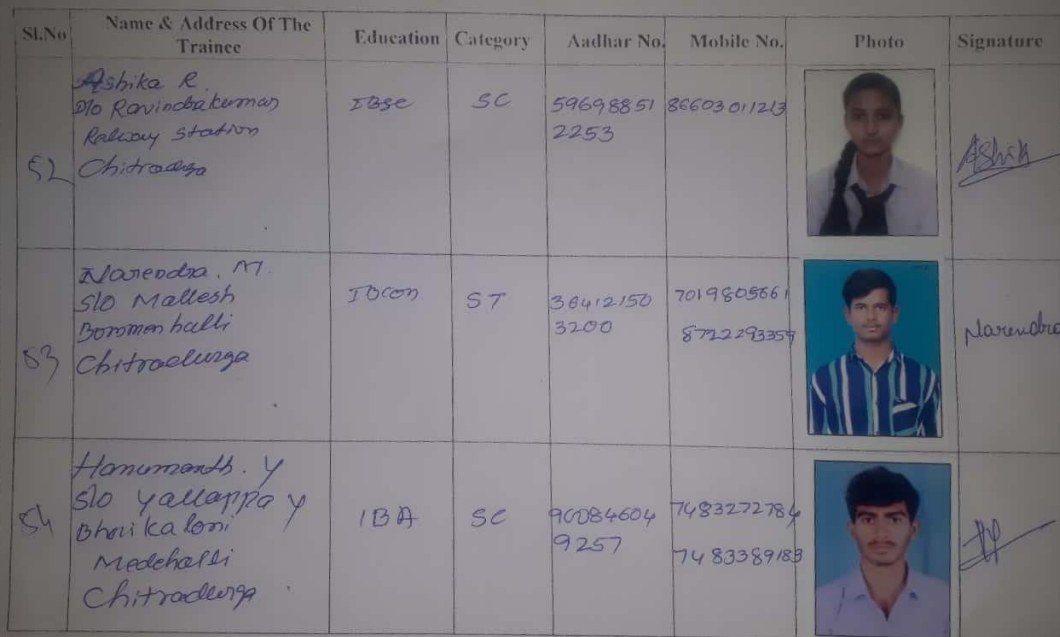 Sl.No
Name & Address Of The Trainee
Education
Category
Aadhar No.
Mobile No.
Photo
Signature
52
Ashika R.
D/o Ravindrakumar
Railway Station
Chitradurga
IBsc
SC
59698851
2253
86603011213
Ashik
53
Narendra. M.
S/o Mallesh
Bommenhalli
Chitradurga
IBcom
ST
36412150
3200
7019805661
8722293359
Narendra
54
Hanumanth. Y
S/o Yallappa Y
Bhovi Kaloni
Medehalli
Chitradurga
IBA
SC
90084604
9257
7483272784
7483389183